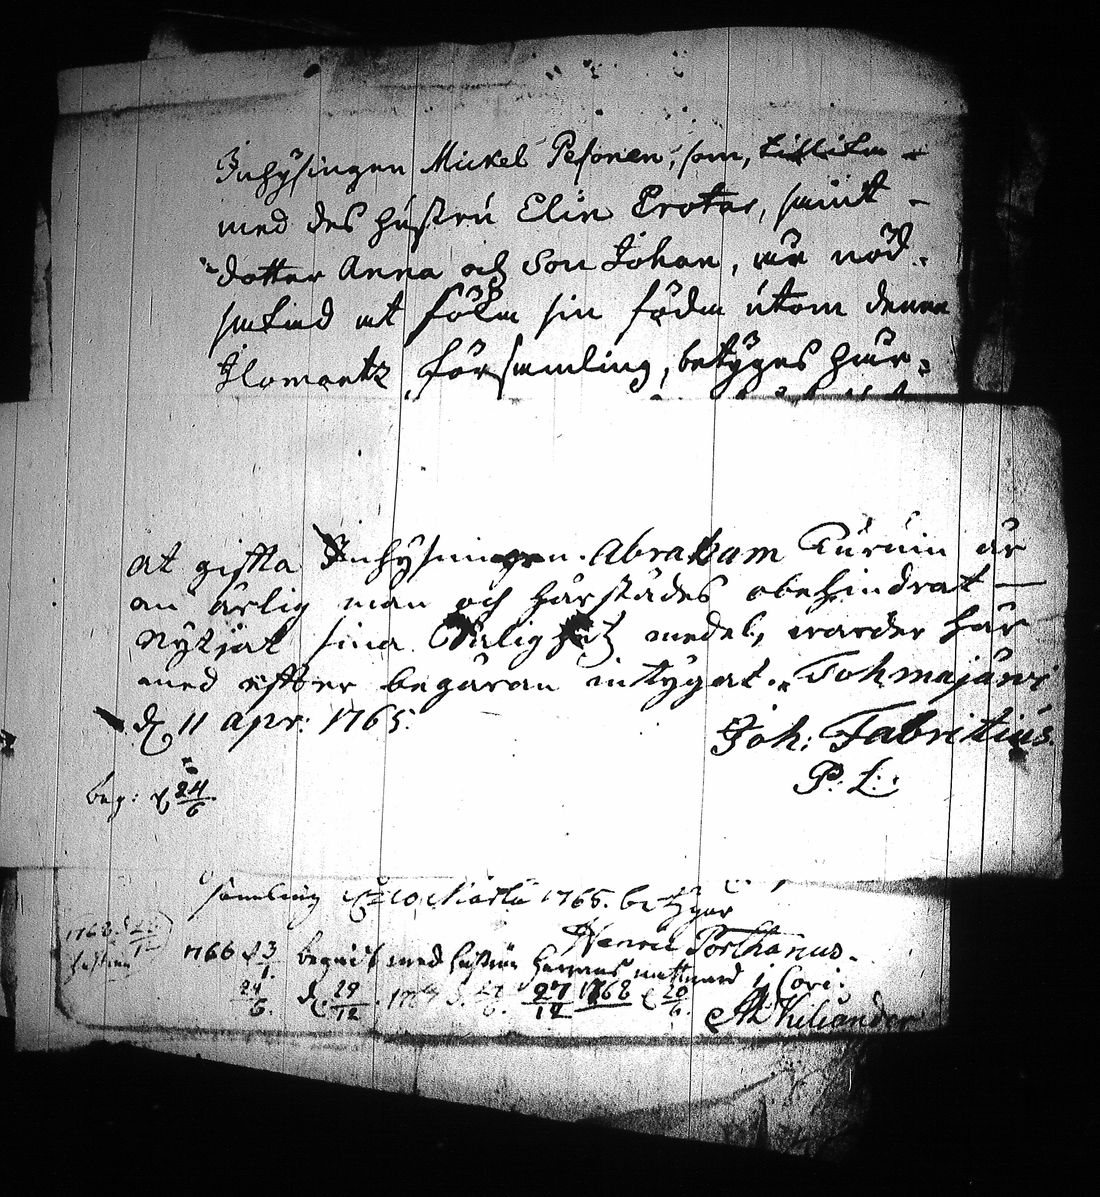 Inhysingen Mickel Pesonen, som, tillika
med des hustru Elin Protas, samt
dotter Anna och Son Johan, är nöd-
sakad at sökia sin föda utom denna
Ilomantz församling, betyges här-
at gifta Inhysingen Abraham Turuin är
en ärlig man och härstädes obehindrat
nytjat sina Salighetz medel, warder här
med efter begäran intygat. Tohmajärvi
d. 11 Apr: 1765.
Joh: Fabritius.
P. L.
beg: d 24/6
samling d 10 Martii 1765. betygar
Henric Porthanus.
1768 d 26/12
hustrun
1766 d 3/1. begått med hustrun Herrans nattward i Cori.
24/6. d. 29/12. 27/12 1768 d 20/6.
Kiliander